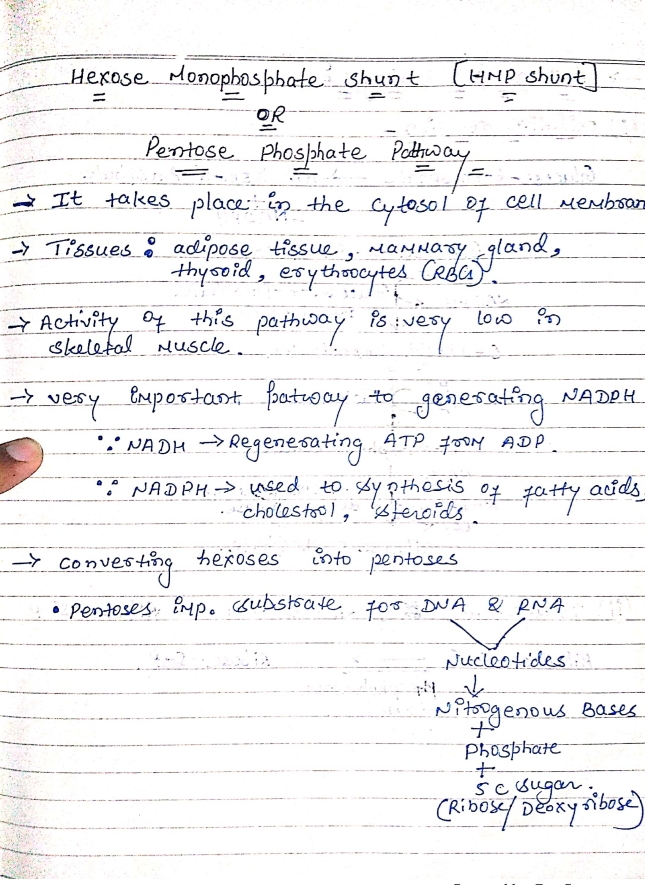 Hexose Monophosphate shunt [HMP shunt]
OR
Pentose Phosphate Pathway
→ It takes place in the cytosol of cell membran
→ Tissues : adipose tissue, mammary gland,
thyroid, erythrocytes (RBCs).
→ Activity of this pathway is very low in
skeletal muscle.
→ very important patway to generating NADPH
∵ NADH → Regenerating ATP from ADP.
∵ NADPH → used to synthesis of fatty acids,
cholestrol, steroids.
→ converting hexoses into pentoses
• Pentoses imp. substrate for DNA & RNA
Nucleotides
↓
Nitrogenous Bases
+
Phosphate
+
5c sugar.
(Ribose/Deoxyribose)